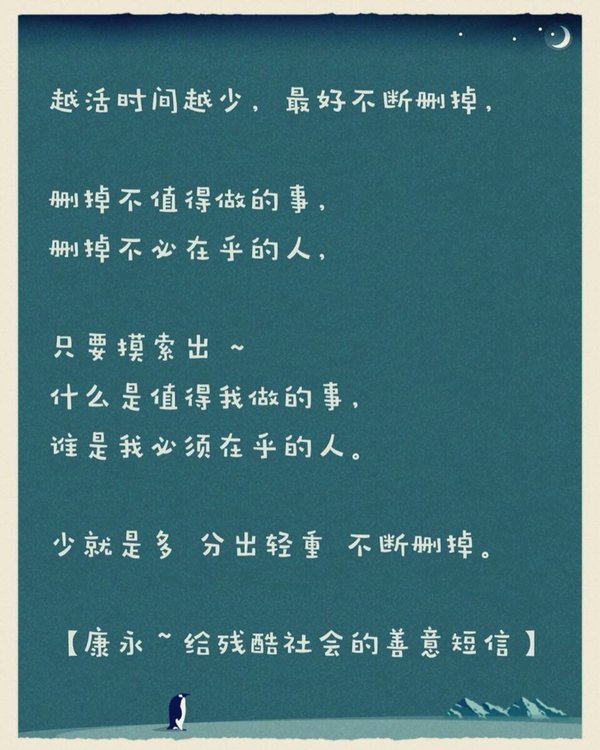 越活时间越少，最好不断删掉，
删掉不值得做的事，
删掉不必在乎的人，
只要摸索出 ~
什么是值得我做的事，
谁是我必须在乎的人。
少就是多 分出轻重 不断删掉。
【康永~给残酷社会的善意短信】